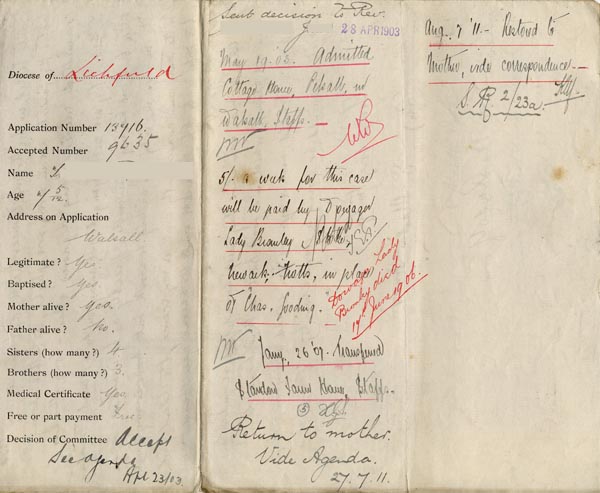 Diocese of Lichfield
Application Number 13916.
Accepted Number 9635
Name
Age 5/12
Address on Application
Walsall
Legitimate? Yes
Baptised? Yes
Mother alive? Yes.
Father alive? No.
Sisters (how many?) 4
Brothers (how many?) 3
Medical Certificate Yes
Free or part payment Free
Decision of Committee Accept
See agenda
Apl 23/03.
Sent decision to Rev.
28 APR 1903
May 19. 03. Admitted
Cottage Home, Pelsall, nr
Walsall, Staffs. —
5/- a week for this case
will be paid by Dowager
Lady Bromley
Newark Notts, in place
of Chas. Gooding.
Dowager Lady
Bromley died
17th June 1906.
Jany. 26 '09. Transferred
Standon Farm Home, Staffs.
Return to mother.
Vide Agenda.
27.7.11.
Aug. 7 '11 - Restored to
Mother, vide correspondence. —
2/23a.